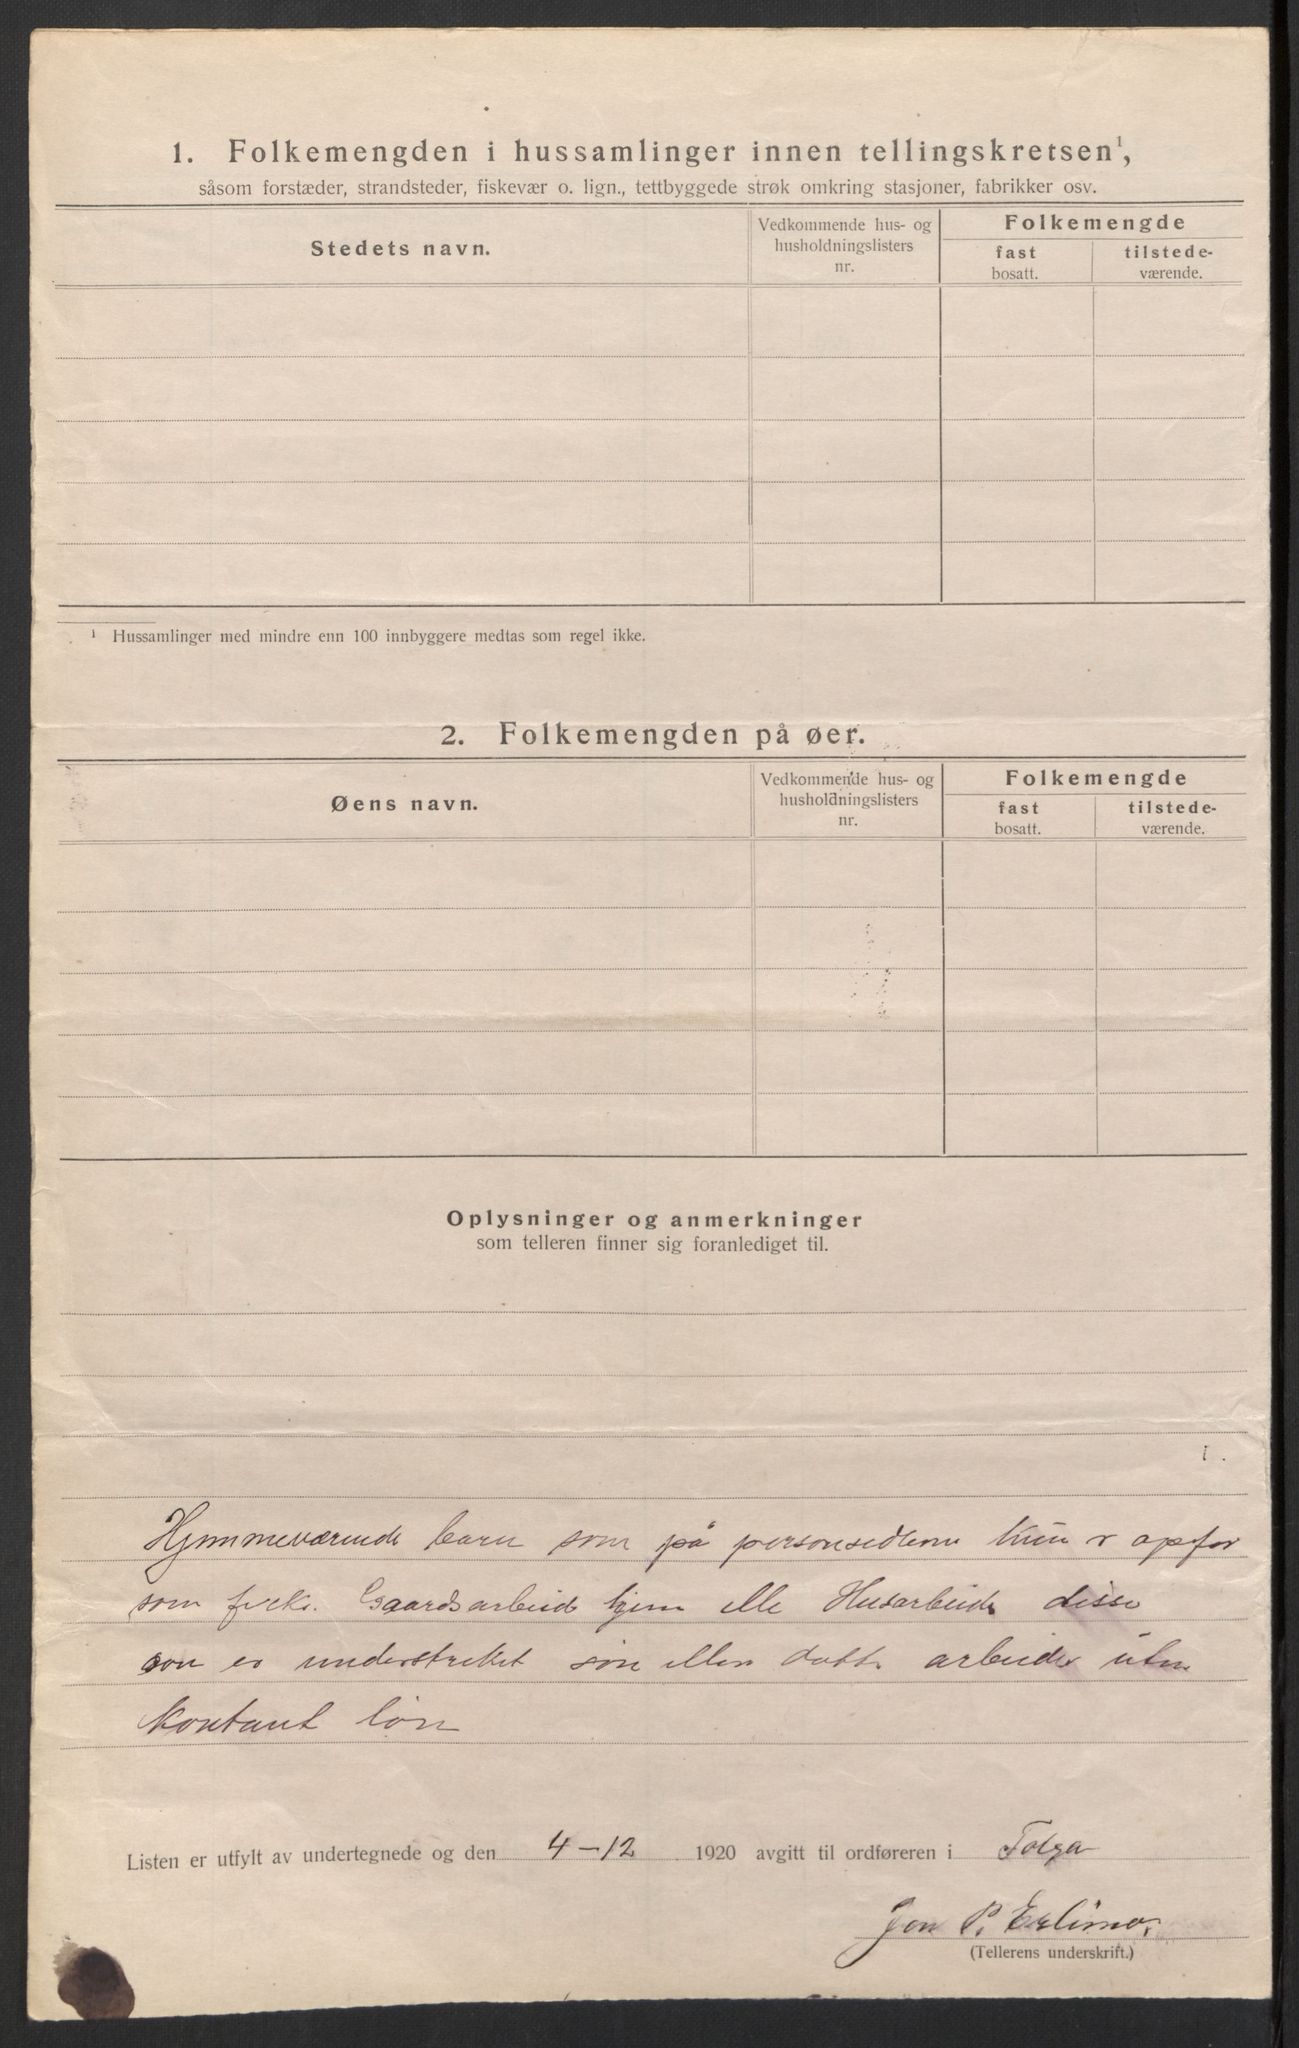 1. Folkemengden i hussamlinger innen tellingskretsen¹,
såsom forstæder, strandsteder, fiskevær o. lign., tettbyggede strøk omkring stasjoner, fabrikker osv.
Stedets navn.
Vedkommende hus- og
husholdningslisters
nr.
Folkemengde
fast
bosatt.
tilstede-
værende.
¹ Hussamlinger med mindre enn 100 innbyggere medtas som regel ikke.
2. Folkemengden på øer.
Øens navn.
Vedkommende hus- og
husholdningslisters
nr.
Folkemengde
fast
bosatt.
tilstede-
værende.
Oplysninger og anmerkninger
som telleren finner sig foranlediget til.
Hjemmeværende barn som på personsedlene kun r opfør
som Gaardsarbeid hjem elle Husarbeide disse
som er understreket søn eller datt. arbeider uten
kontant løn
Listen er utfylt av undertegnede og den 4-12 1920 avgitt til ordføreren i Tolga
Jon P. Erlimo.
(Tellerens underskrift.)